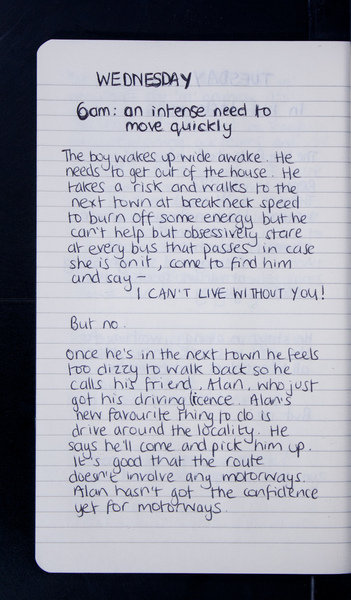 WEDNESDAY
6am: an intense need to
move quickly
The boy wakes up wide awake. He
needs to get out of the house. He
takes a risk and walks to the
next town at breakneck speed
to burn off some energy but he
can't help but obsessively stare
at every bus that passes in case
she is on it, come to find him
and say –
I CAN'T LIVE WITHOUT YOU!
But no.
Once he's in the next town he feels
too dizzy to walk back so he
calls his friend, Alan, who just
got his driving licence. Alan's
new favourite thing to do is
drive around the locality. He
says he'll come and pick him up.
It's good that the route
doesn't involve any motorways.
Alan hasn't got the confidence
yet for motorways.